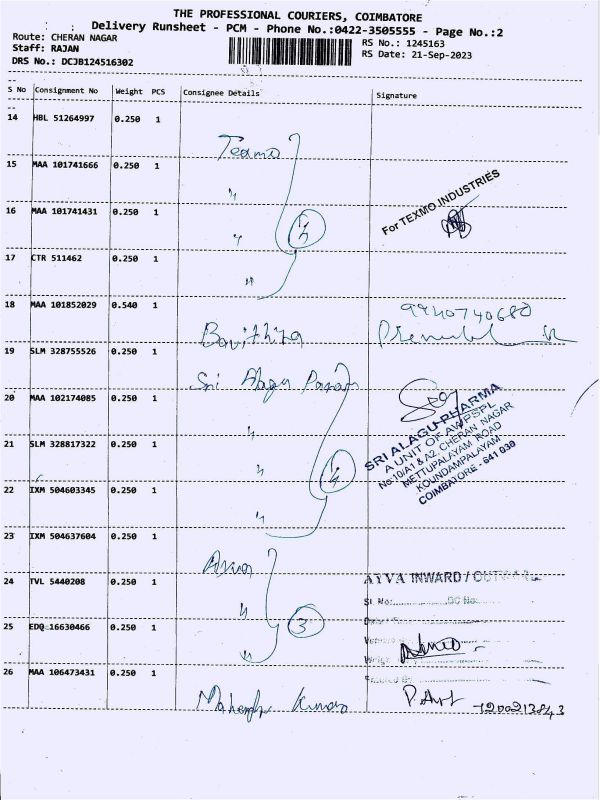 THE PROFESSIONAL COURIERS, COIMBATORE
Delivery Runsheet - PCM - Phone No.:0422-3505555 - Page No.:2
Route: CHERAN NAGAR
Staff: RAJAN
DRS No.: DCJB124516302
RS No.: 1245163
RS Date: 21-Sep-2023
S No Consignment No Weight PCS Consignee Details Signature
14 HBL 51264997 0.250 1
Texmo
15 MAA 101741666 0.250 1
〃
For TEXMO INDUSTRIES
16 MAA 101741431 0.250 1
〃
17 CTR 511462 0.250 1
〃
18 MAA 101852029 0.540 1
Bavithra
9940740680
19 SLM 328755526 0.250 1
Sri Alagu
20 MAA 102174085 0.250 1
〃
SRI ALAGU PHARMA
A UNIT OF AWPSPL
No:10/A1 & A2, CHERAN NAGAR
METTUPALAYAM ROAD
KOUNDAMPALAYAM
COIMBATORE - 641 030
21 SLM 328817322 0.250 1
〃
22 IXM 504603345 0.250 1
〃
23 IXM 504637604 0.250 1
24 TVL 5440208 0.250 1
〃
AYVA INWARD / OUTWARD
Sl. No: DC No
25 EDQ 16630466 0.250 1
〃
3
26 MAA 106473431 0.250 1
Kumar